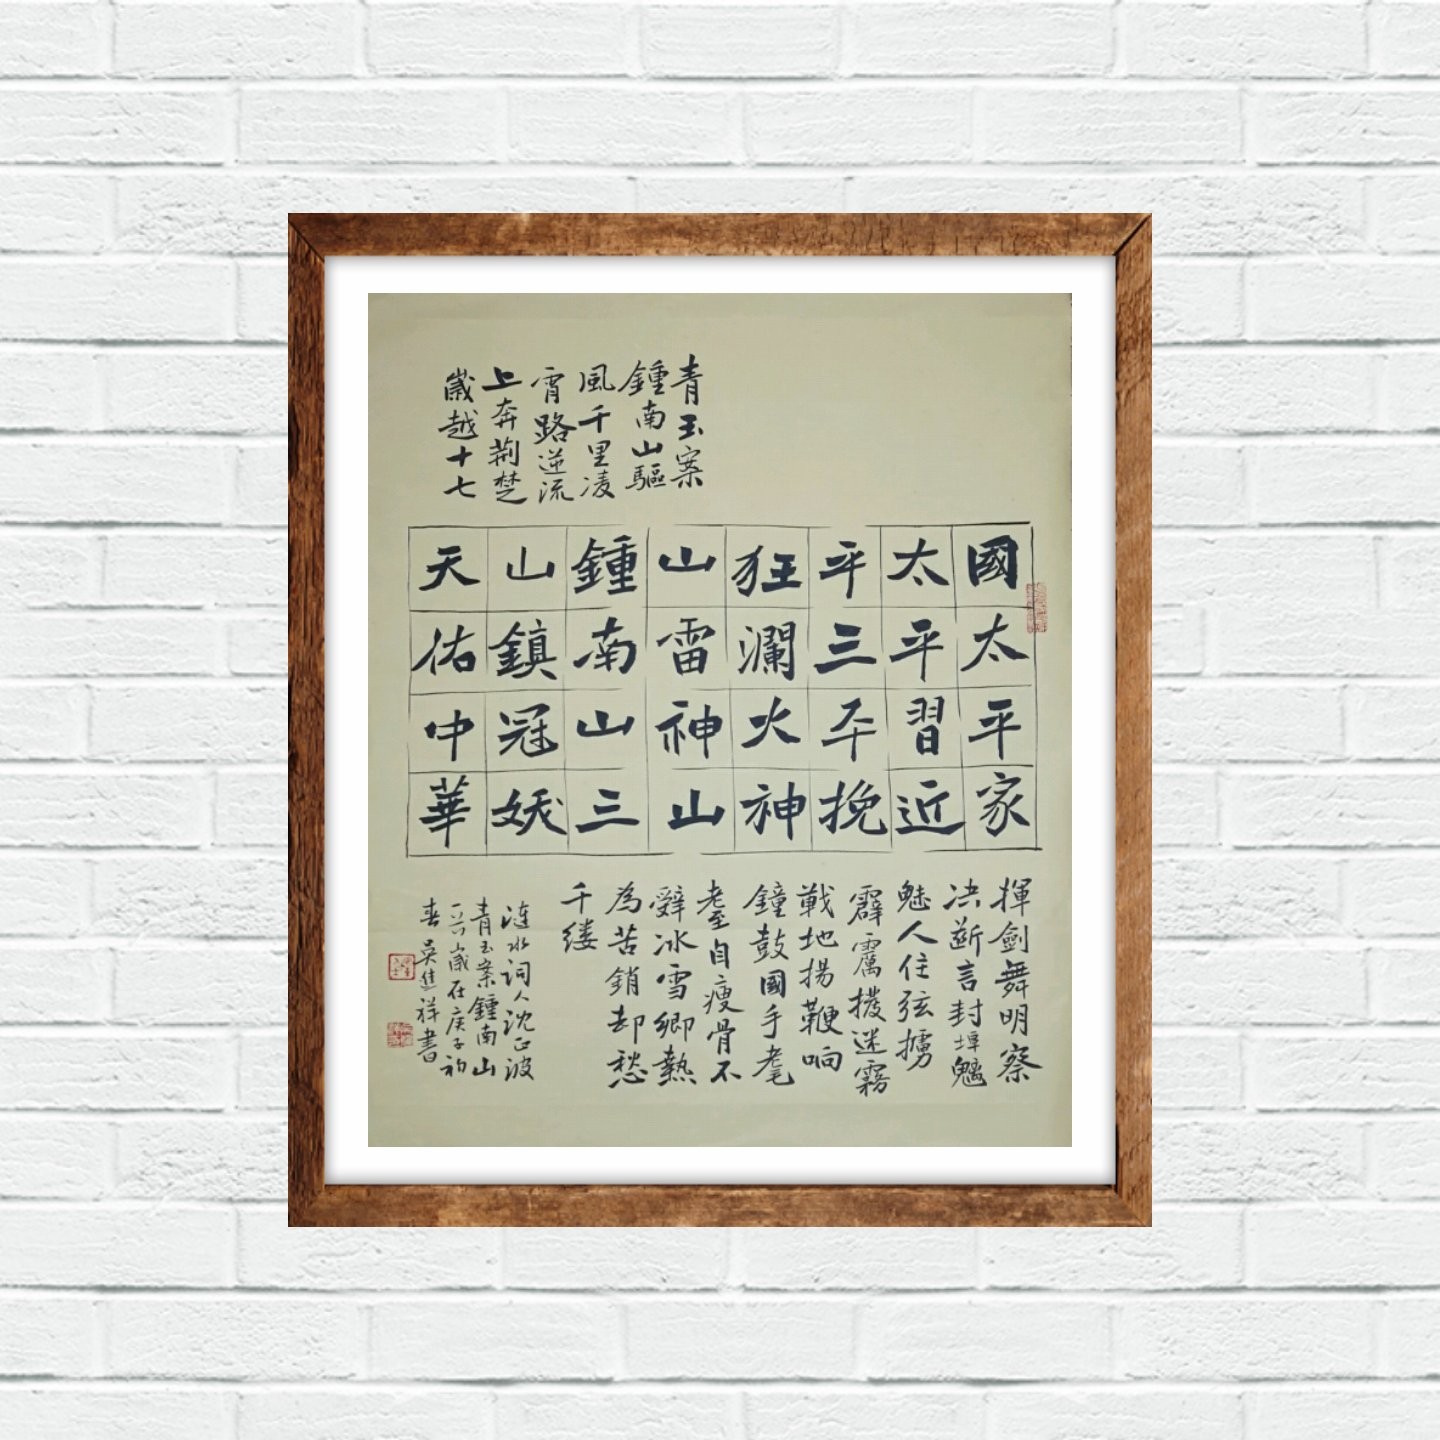 青玉案
鍾南山驅
風千里凌
霄路逆流
上奔荊楚
歲越十七
國太平家
太平習近
平三平挽
狂瀾火神
山雷神山
鍾南山三
山鎮冠妖
天佑中華
揮劍舞明察
决斷言封埠魑
魅人住弦擄
霹靂撥迷霧
戰地揚鞭响
鐘鼓國手耄
耋自瘦骨不
辭冰雪鄉熱
為苦銷却愁
千缕
漣水詞人沈正波
青玉案鍾南山
歲在庚子初
春吳祥書